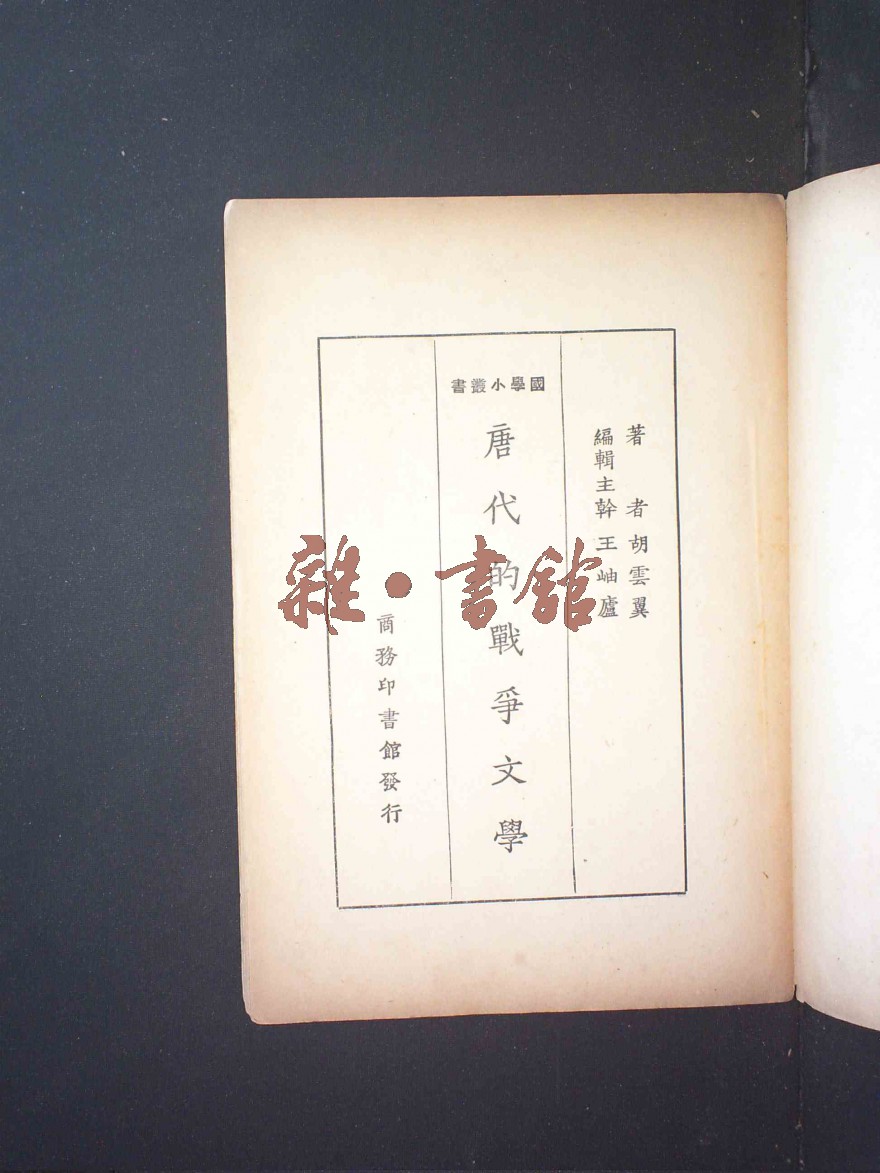 著者胡雲翼
編輯主幹王岫廬
國學小叢書
唐代的戰爭文學
商務印書館發行
雜·書館